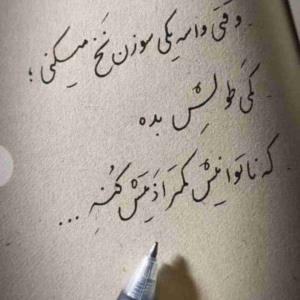 وقتی واسه یکی سوزن نَخ میکنی ؛
کمی طولِش بده
که ناتوانیِش کمتر اذیتِش کُنه ...